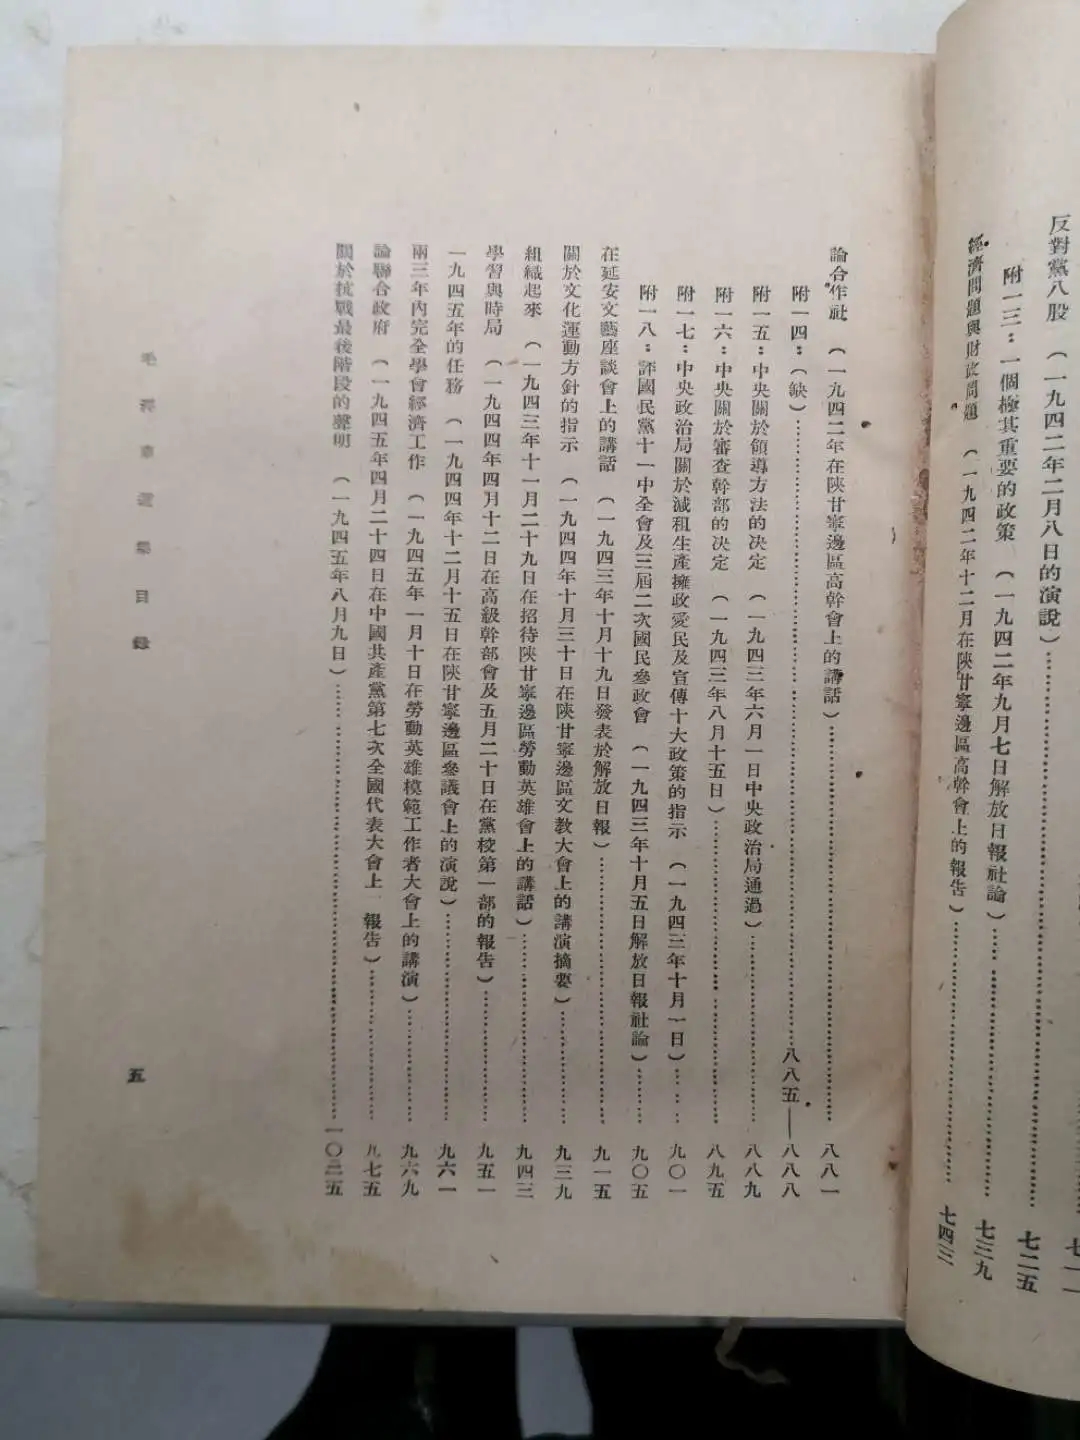 反對黨八股　（一九四二年二月八日的演說）…………七一一
附一三：一個極其重要的政策　（一九四二年九月七日解放日報社論）…………七二五
經濟問題與財政問題　（一九四二年十二月在陝甘寧邊區高幹會上的報告）…………七四三
論合作社　（一九四二年在陝甘寧邊區高幹會上的講話）…………八八一
附一四：（缺）…………八八五——八八八
附一五：中央關於領導方法的決定　（一九四三年六月一日中央政治局通過）…………八八九
附一六：中央關於審查幹部的決定　（一九四三年八月十五日）…………八九五
附一七：中央政治局關於減租生產擁政愛民及宣傳十大政策的指示　（一九四三年十月一日）…………九〇一
附一八：評國民黨十一中全會及三屆二次國民參政會　（一九四三年十月五日解放日報社論）…………九〇五
在延安文藝座談會上的講話　（一九四三年十月十九日發表於解放日報）…………九一五
關於文化運動方針的指示　（一九四四年十月三十日在陝甘寧邊區文教大會上的講演摘要）…………九三九
組織起來　（一九四三年十一月二十九日在招待陝甘寧邊區勞動英雄會上的講話）…………九四三
學習與時局　（一九四四年四月十二日在高級幹部會及五月二十日在黨校第一部的報告）…………九五一
一九四五年的任務　（一九四四年十二月十五日在陝甘寧邊區參議會上的演說）…………九六一
兩三年內完全學會經濟工作　（一九四五年一月十日在勞動英雄模範工作者大會上的講演）…………九六九
論聯合政府　（一九四五年四月二十四日在中國共產黨第七次全國代表大會上　報告）…………九七五
關於抗戰最後階段的聲明　（一九四五年八月九日）…………一〇二五
毛澤東選集目錄
五